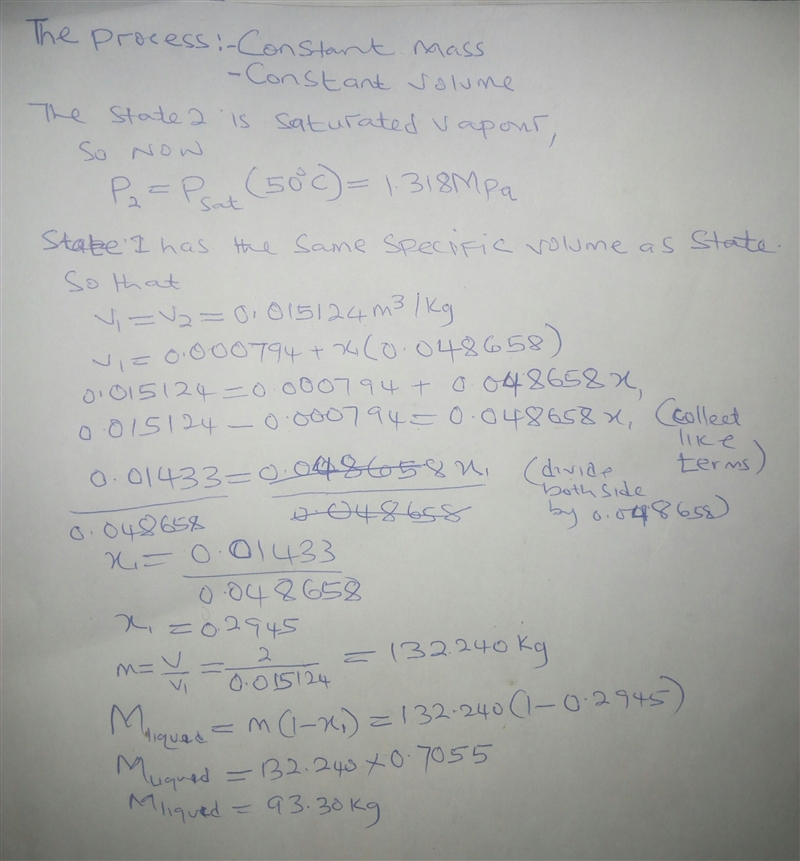 The process:- Constant mass
- Constant volume
The State 2 is saturated vapour,
So now
P₂ = P_sat (50°C) = 1.318MPa
State 1 has the same specific volume as State.
So that
V₁ = V₂ = 0.015124 m³/kg
V₁ = 0.000794 + x₁(0.048658)
0.015124 = 0.000794 + 0.048658x₁
0.015124 - 0.000794 = 0.048658x₁ (collect like terms)
0.01433/0.048658 = 0.048658x₁/0.048658 (divide both side by 0.048658)
x₁ = 0.01433/0.048658
x₁ = 0.2945
m = V/V₁ = 2/0.015124 = 132.240 kg
M_liqued = m(1-x₁) = 132.240(1-0.2945)
M_liqued = 132.240 × 0.7055
M_liqued = 93.30kg